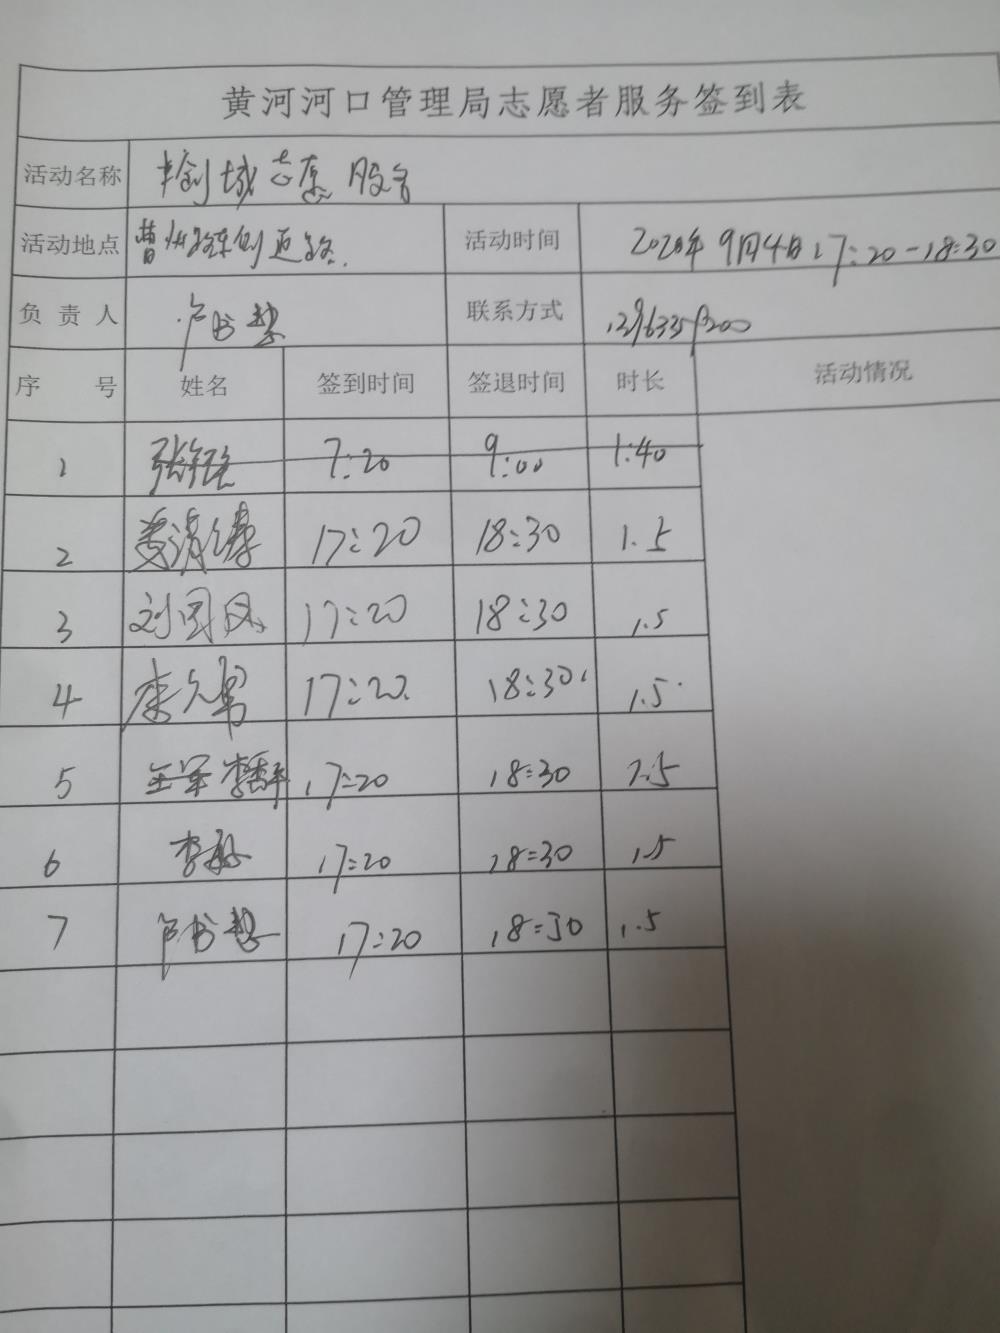 黄河河口管理局志愿者服务签到表
活动名称 创城志愿服务
活动地点 曹州路 活动时间 2020年9月4日17:20-18:30
负责人 卢书慧 联系方式
序号 姓名 签到时间 签退时间 时长 活动情况
1 7:20 9:00 1:40
2 17:20 18:30 1.5
3 刘国风 17:20 18:30 1.5
4 17:20 18:30 1.5
5 17:20 18:30 1.5
6 17:20 18:30 1.5
7 卢书慧 17:20 18:30 1.5